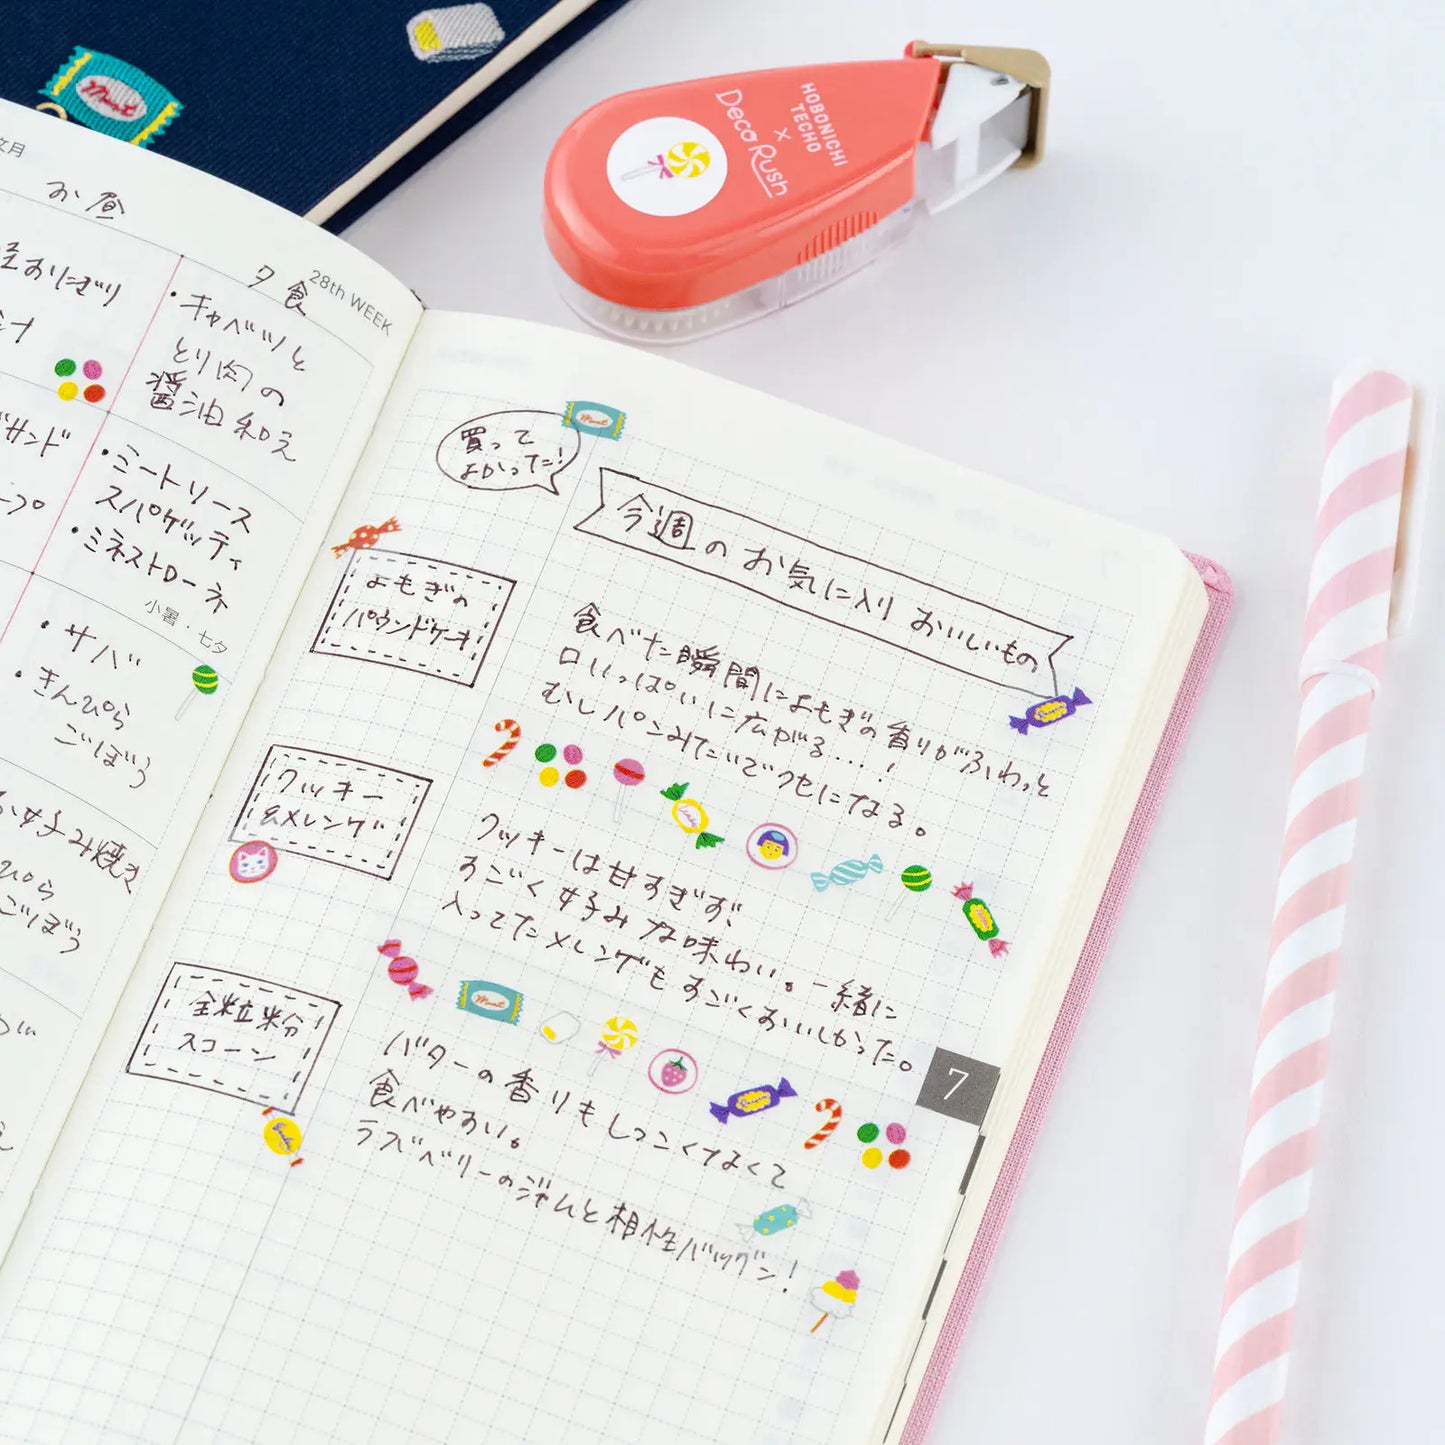 Mint
HOBONICHI
TECHO
×
Deco Rush
文月
お昼
おにぎり
夕食
28th WEEK
・キャベツと
とり肉の
醤油和え
サンド
・ミートソース
スパゲッティ
・ミネストローネ
小暑・七夕
・サバ
・きんぴら
ごぼう
お好み焼き
ぴら
ごぼう
買って
よかった!
Mint
今週のお気に入りおいしいもの
よもぎの
パウンドケーキ
食べた瞬間によもぎの香りがふわっと
口いっぱいに広がる…!
むしパンみたいでクセになる。
クッキー
&メレンゲ
クッキーは甘すぎず、
すごく好みな味わい。一緒に
入ってたメレンゲもすごくおいしかった。
Mint
全粒粉
スコーン
バターの香りもしつこくなくて
食べやすい。
ラズベリーのジャムと相性バツグン!
7